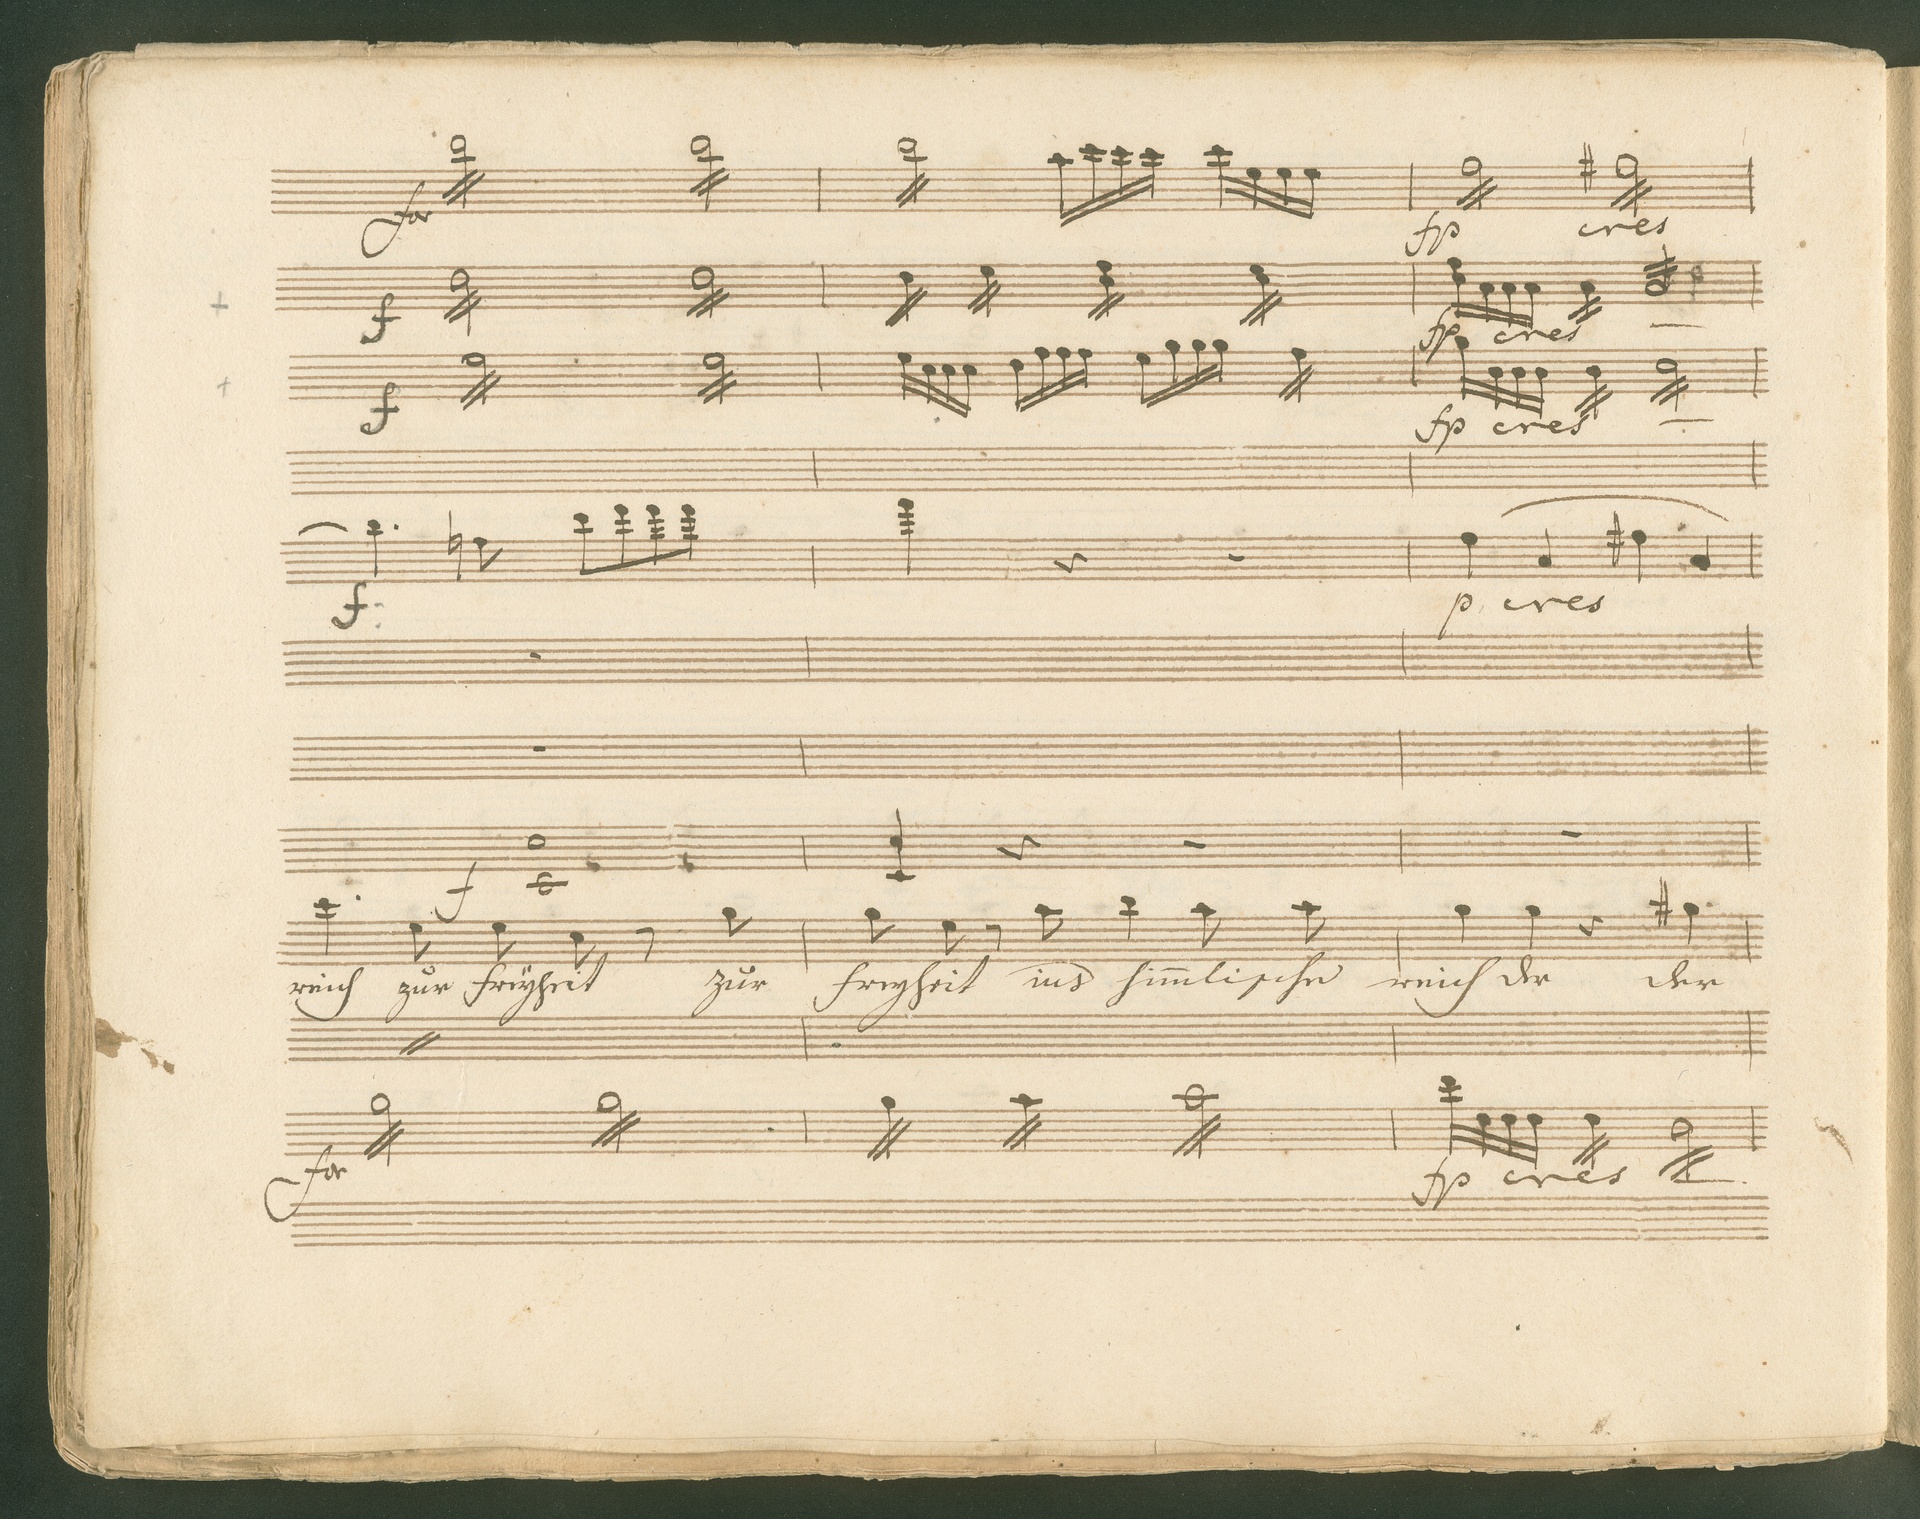 for
fp cres
f
fp cres
f
fp cres
f:
p cres
f
reich zur freÿheit zur freyheit ins him̅lische reich der der
for
fp cres